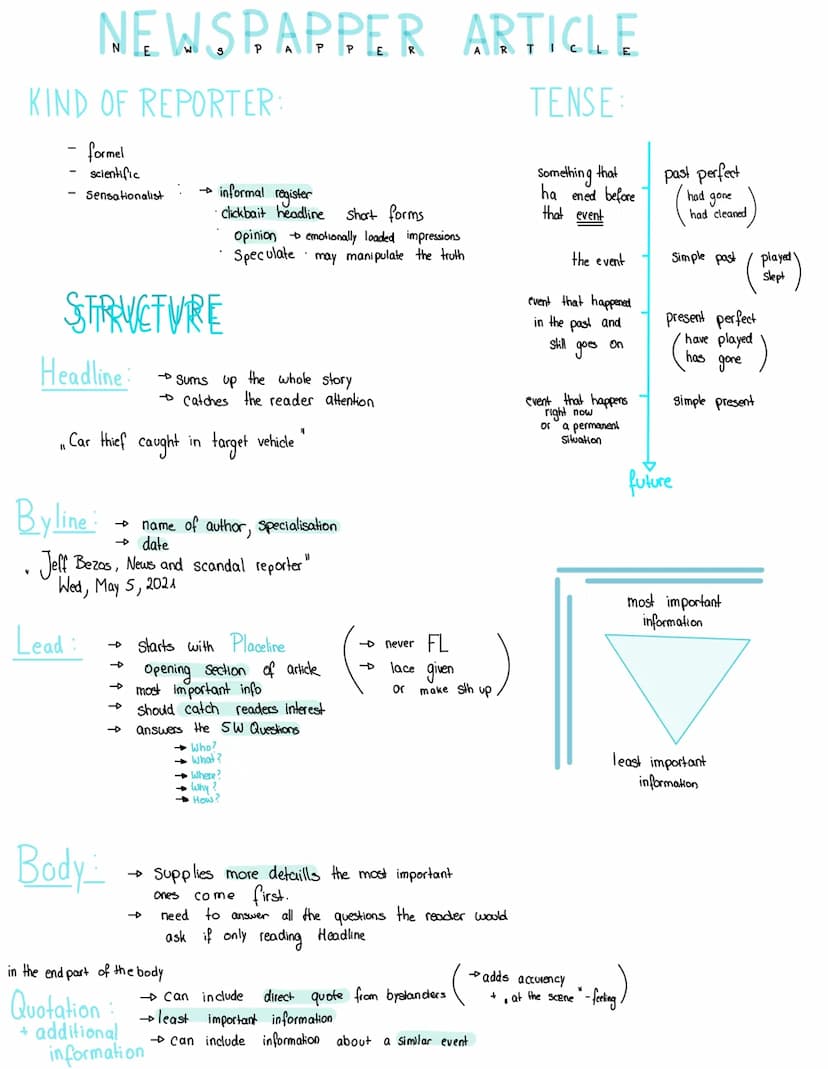 NEWSPAPPER ARTICLE
NEWSPAPPER ARTICLE
KIND OF REPORTER:
- formel
- scientific
- sensationalist : → informal register
· clickbait headline short forms
opinion → emotionally loaded impressions
· speculate · may manipulate the truth
TENSE:
something that
ha ened before
that event
past perfect
(had gone
had cleaned)
the event
simple past (played
slept)
event that happened
in the past and
still goes on
present perfect
(have played
has gone)
event that happens
right now
or a permanent
situation
simple present
future
STRUCTURE
STRUCTURE
Headline: → sums up the whole story
→ catches the reader attention
„Car thief caught in target vehicle"
Byline: → name of author, specialisation
→ date
"Jeff Bezos, News and scandal reporter"
Wed, May 5, 2021
Lead: → starts with Placeline
(→ never FL
→ lace given
or make sth up)
→ opening section of article
→ most important info
→ should catch readers interest
→ answers the 5W Questions
→ Who?
→ What?
→ Where?
→ Why?
→ How?
most important
information
least important
information
Body: → supplies more detaills the most important
ones come first.
→ need to answer all the questions the reader would
ask if only reading Headline
in the endpart of the body
Quotation :
+ additional
information
→ can include direct quote from bystanders
(→ adds accurency
+ „at the scene"-feeling)
→ least important information
→ can include information about a similar event